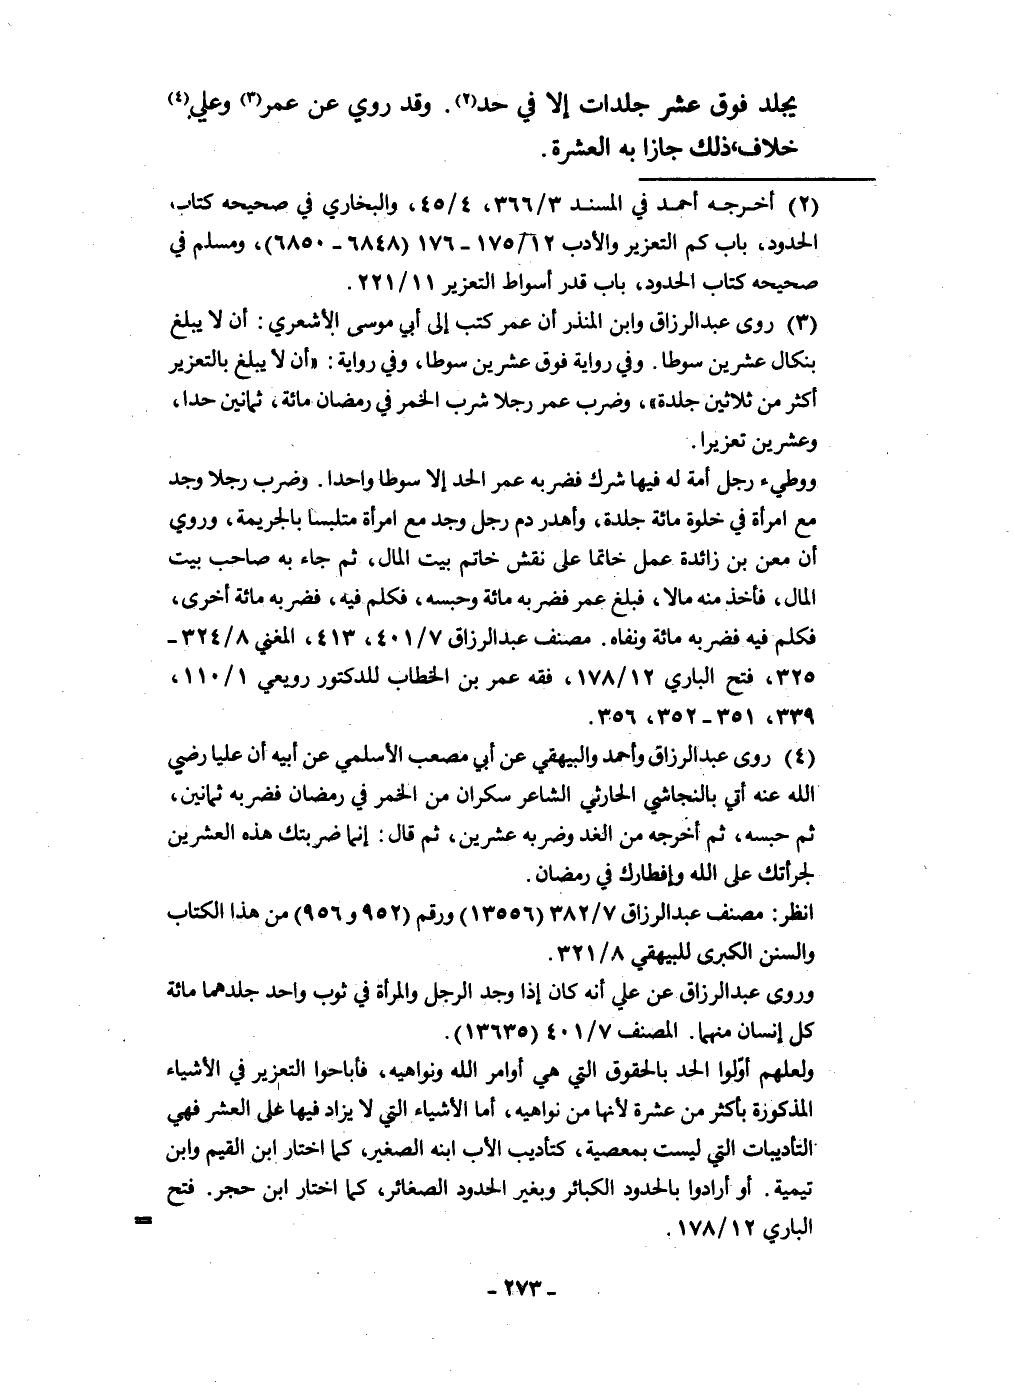 يجلد فوق عشر جلدات إلا في حد(٢). وقد روي عن عمر(٣) وعلي(٤)
خلاف ذلك جازا به العشرة.
(٢) أخرجه أحمد في المسند ٣٦٦/٣، ٤٥/٤، والبخاري في صحيحه كتاب
الحدود، باب كم التعزير والأدب ١٧٥/١٢ - ١٧٦ (٦٨٤٨ - ٦٨٥٠)، ومسلم في
صحيحه كتاب الحدود، باب قدر أسواط التعزير ٢٢١/١١.
(٣) روى عبدالرزاق وابن المنذر أن عمر كتب إلى أبي موسى الأشعري: أن لا يبلغ
بنكال عشرين سوطا. وفي رواية فوق عشرين سوطا، وفي رواية: «أن لا يبلغ بالتعزير
أكثر من ثلاثين جلدة»، وضرب عمر رجلا شرب الخمر في رمضان مائة، ثمانين حدا،
وعشرين تعزيرا.
ووطىء رجل أمة له فيها شرك فضربه عمر الحد إلا سوطا واحدا. وضرب رجلا وجد
مع امرأة في خلوة مائة جلدة، وأهدر دم رجل وجد مع امرأة متلبسا بالجريمة، وروي
أن معن بن زائدة عمل خاتما على نقش خاتم بيت المال، ثم جاء به صاحب بيت
المال، فأخذ منه مالا، فبلغ عمر فضربه مائة وحبسه، فكلم فيه، فضربه مائة أخرى،
فكلم فيه فضربه مائة ونفاه. مصنف عبدالرزاق ٤٠١/٧، ٤١٣، المغني ٣٢٤/٨ -
٣٢٥، فتح الباري ١٧٨/١٢، فقه عمر بن الخطاب للدكتور رويعي ١١٠/١،
٣٣٩، ٣٥١ - ٣٥٢، ٣٥٦.
(٤) روى عبدالرزاق وأحمد والبيهقي عن أبي مصعب الأسلمي عن أبيه أن عليا رضي
الله عنه أتي بالنجاشي الحارثي الشاعر سكران من الخمر في رمضان فضربه ثمانين،
ثم حبسه، ثم أخرجه من الغد وضربه عشرين، ثم قال: إنما ضربتك هذه العشرين
لجرأتك على الله وإفطارك في رمضان.
انظر: مصنف عبدالرزاق ٣٨٢/٧ (١٣٥٥٦) ورقم (٩٥٢ و ٩٥٦) من هذا الكتاب
والسنن الكبرى للبيهقي ٣٢١/٨.
وروى عبدالرزاق عن علي أنه كان إذا وجد الرجل والمرأة في ثوب واحد جلدهما مائة
كل إنسان منهما. المصنف ٤٠١/٧ (١٣٦٣٥).
ولعلهم أوّلوا الحد بالحقوق التي هي أوامر الله ونواهيه، فأباحوا التعزير في الأشياء
المذكورة بأكثر من عشرة لأنها من نواهيه، أما الأشياء التي لا يزاد فيها على العشر فهي
التأديبات التي ليست بمعصية، كتأديب الأب ابنه الصغير، كما اختار ابن القيم وابن
تيمية. أو أرادوا بالحدود الكبائر وبغير الحدود الصغائر، كما اختار ابن حجر. فتح
الباري ١٧٨/١٢. =
- ٢٧٣ -